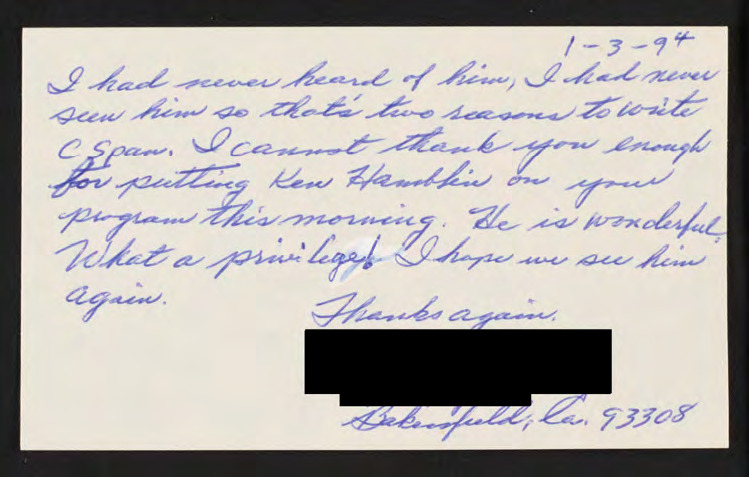 1-3-94
I had never heard of him, I had never
seen him so that's two reasons to write
C Span. I cannot thank you enough
for putting Ken Hamblin on your
program this morning. He is wonderful.
What a privilege! I hope we see him
again.
Thanks again.
Bakersfield, Ca. 93308